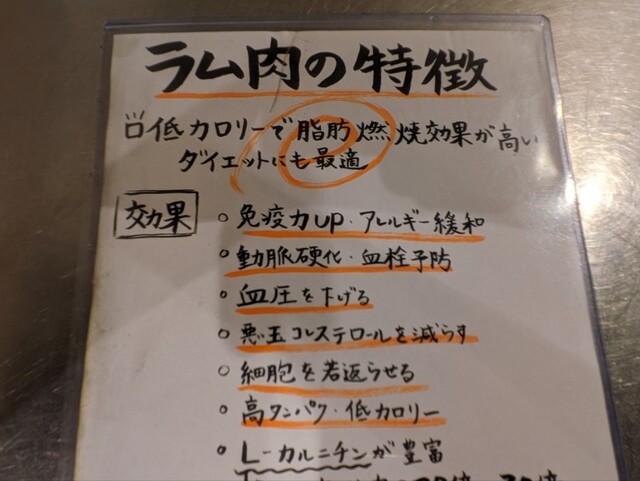 ラム肉の特徴
低カロリーで脂肪燃焼効果が高い
ダイエットにも最適
効果
○免疫力UP・アレルギー緩和
○動脈硬化・血栓予防
○血圧を下げる
○悪玉コレステロールを減らす
○細胞を若返らせる
○高タンパク・低カロリー
○L-カルニチンが豊富